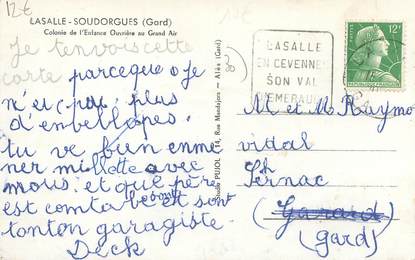 12€
LASALLE-SOUDORGUES (Gard)
Colonie de l'Enfance Ouvrière au Grand Air
Je tenvois cette
carte parceque je
n'ei pas plus
d'enveloppes.
tu ve bien emme
ner millette avec
mous. et que père
est comtable
son
tonton garagiste.
Deck
30
PUJOL, 14, Rue Mandajors - Alès (Gard)
LASALLE
EN CEVENNES
SON VAL
D'EMERAUDE
12F
M et M Raymo
vidal
Sernac
(Garard)
(gard)